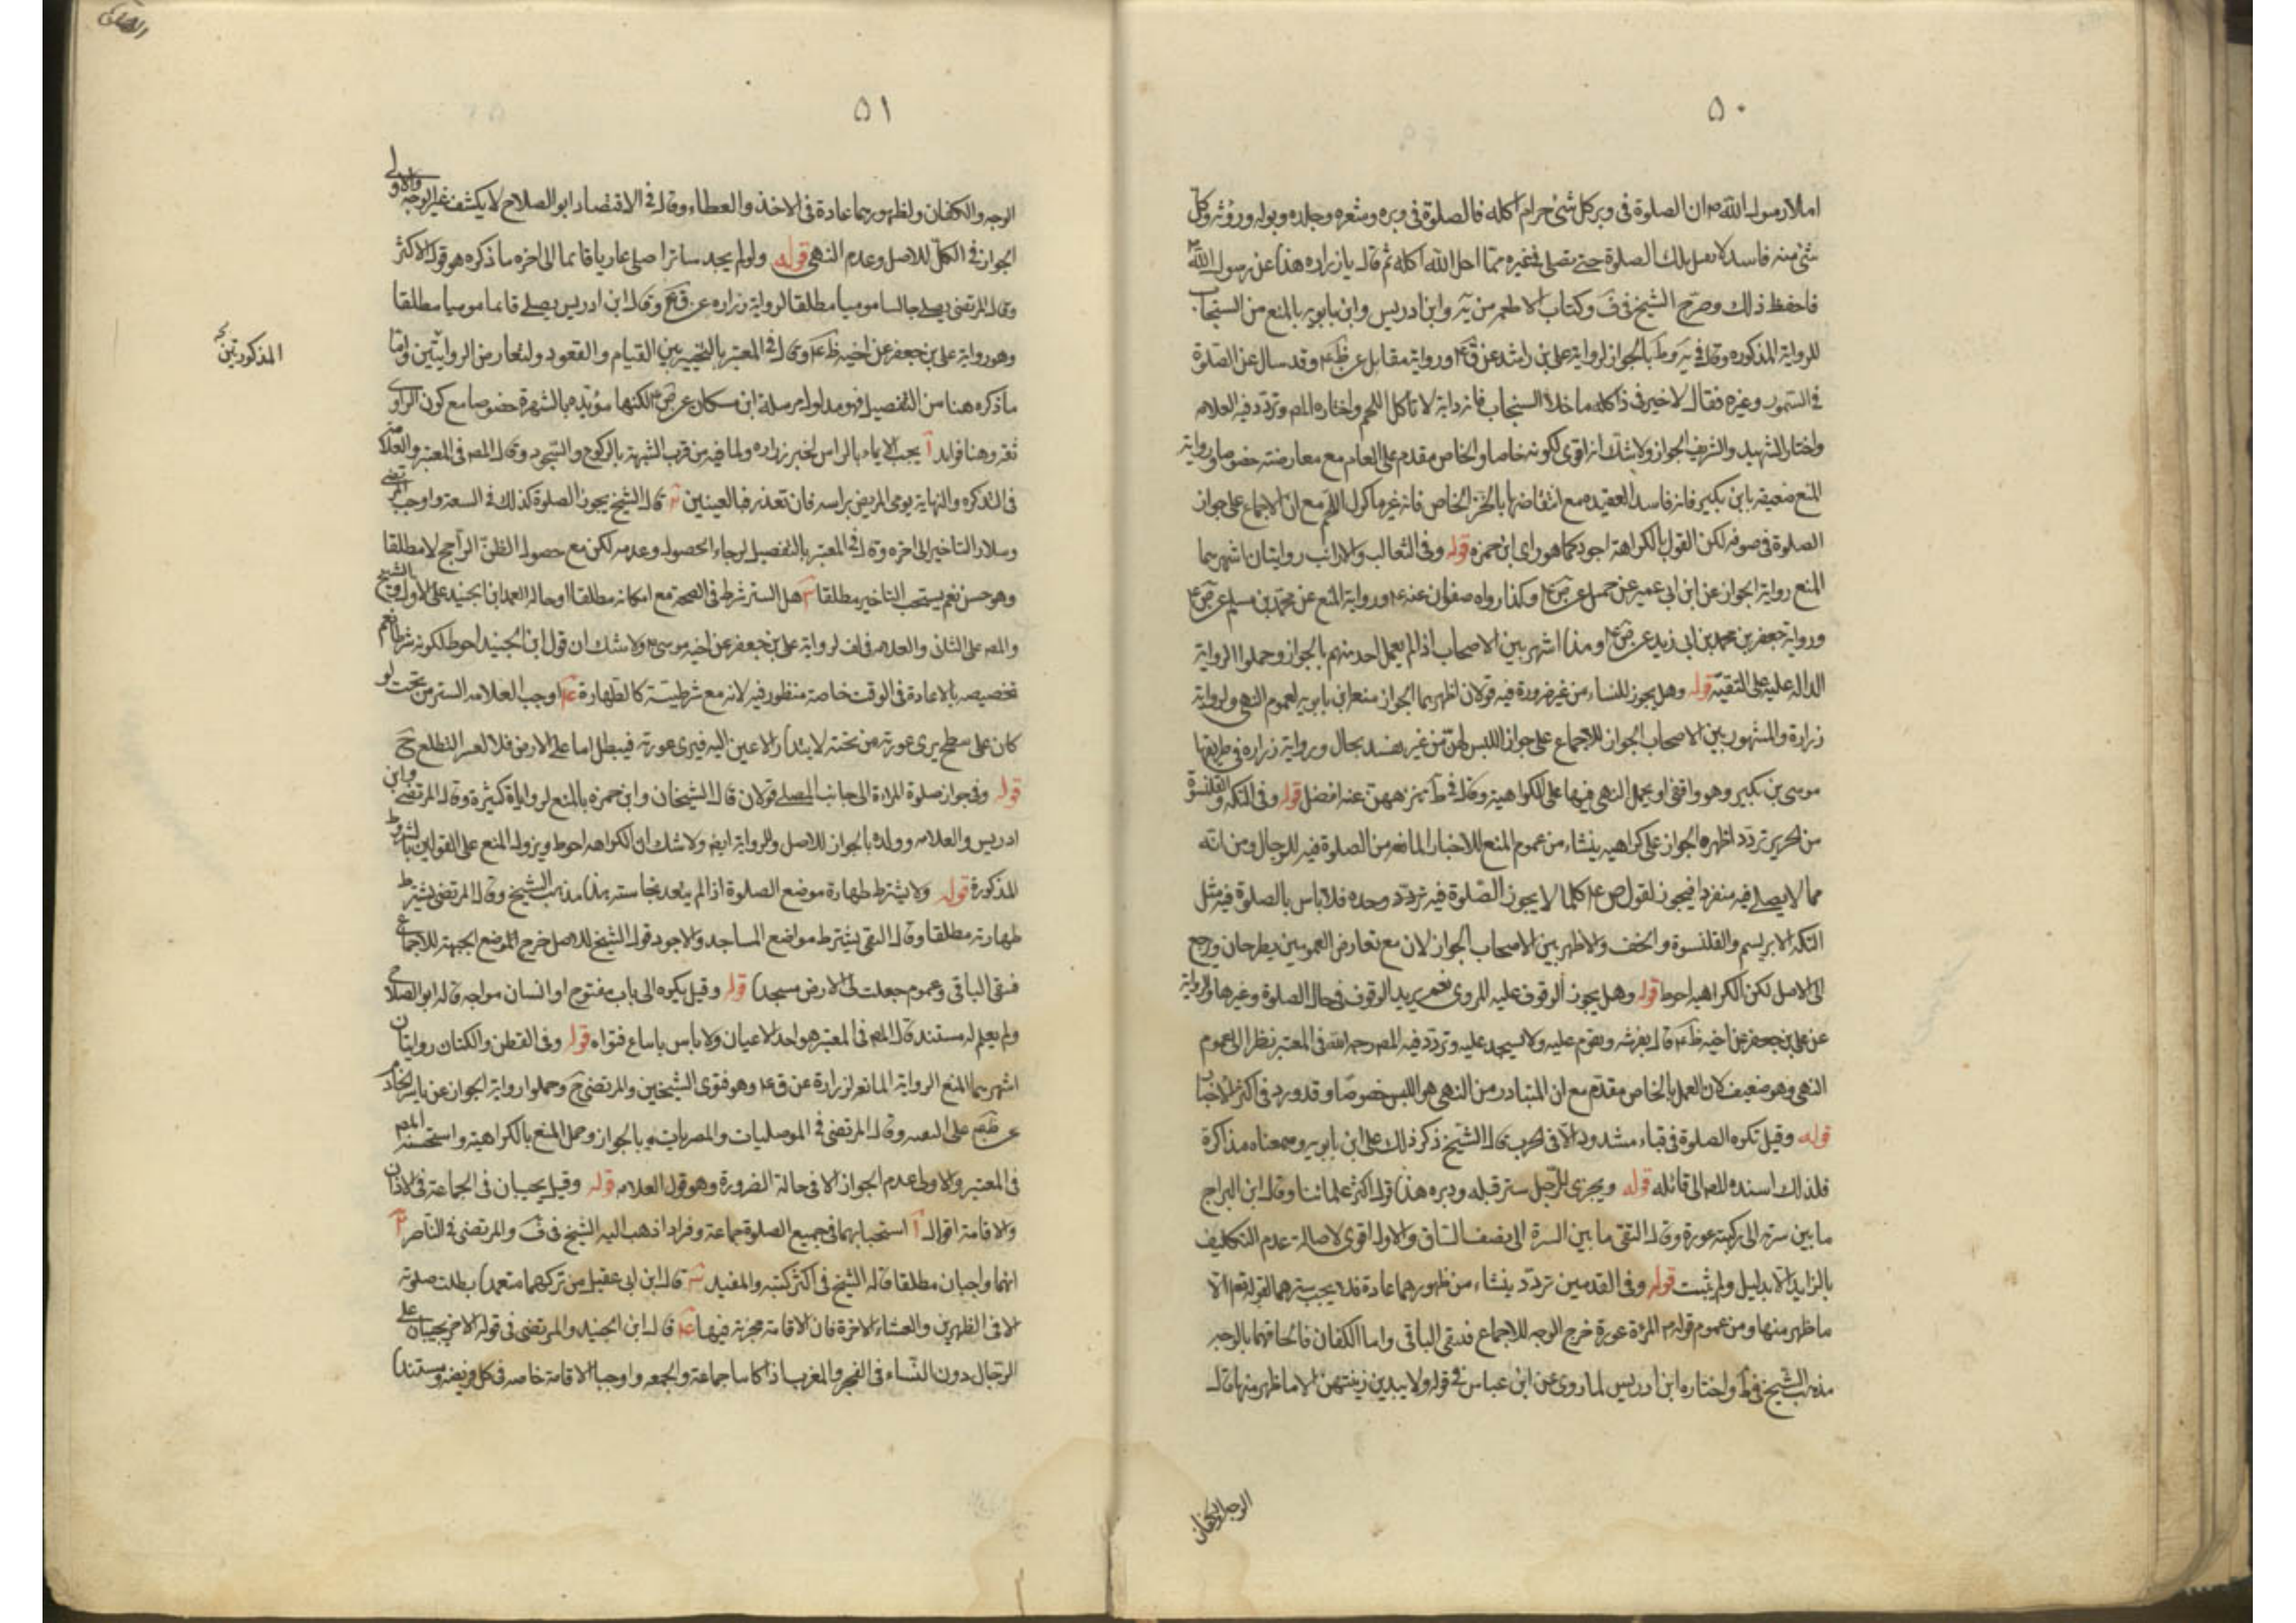 ٥٠
املاء رسول الله ص ان الصلوة فى وبر كل شئ حرام اكله فالصلوة فى وبره وشعره وجلده وبوله وروثه وكل
شئ منه فاسد لا تقبل تلك الصلوة حتى تصلى فى غيره مما احل الله اكله ثم قال يا زراره هذا عن رسول الله ص
فاحفظ ذلك وصرح الشيخ فى ف وكتاب الاطعمه من يه وابن ادريس وابن بابويه بالمنع من السنجاب
للرواية المذكوره وقال فى يه وط بالجواز لرواية على بن راشد عن ق ع ورواية مقاتل عن ظم ع وقد سال عن الصلوة
فى السمور وغيره فقال لا خير فى ذا كله ما خلا السنجاب فانه دابة لا تاكل اللحم واختاره المص وتردد فيه العلامه
واختار الشهيد والشريف الجواز ولا شك انه اقوى لكونه خاصا والخاص مقدم على العام مع معارضته خصوصا ورواية
المنع ضعيفه بابن بكير فانه فاسد العقيده مع انتقاضها بالخز الخاص فانه غير ماكول اللحم مع ان الاجماع على جواز
الصلوة فى صوفه لكن القول بالكراهة اجود كما هو راى ابن حمزه قوله وفى الثعالب والارانب روايتان اشهرهما
المنع رواية الجواز عن ابن ابى عمير عن جميل عن ص ع وكذا رواه صفوان عنه ع ورواية المنع عن محمد بن مسلم عن ص ع
ورواية جعفر بن محمد بن ابى زيد عن ص ع وهذا اشهر بين الاصحاب اذ لم يعمل احد منهم بالجواز وحملوا الرواية
الداله عليه على التقية قوله وهل يجوز للنساء من غير ضرورة فيه قولان اظهرهما الجواز منع ابن بابويه لعموم النهى ولرواية
زرارة والمشهور بين الاصحاب الجواز للاجماع على جواز اللبس لهن من غير تقييد بحال ورواية زراره فى طريقها
موسى بن بكير وهو واقفى او يحمل النهى فيها على الكراهية وقال فى ط تنزههن عنه افضل قوله وفى التكه والقلنسوة
من الحرير تردد اظهره الجواز على كراهيه ينشاء من عموم المنع للاخبار المانعه من الصلوة فيه للرجال ومن انه
مما لا يصلى فيه منفردا فيجوز لقول ص ع كلما لا يجوز الصلوة فيه وحده فلا باس بالصلوة فيه مثل
التكه الابريسم والقلنسوة والخف والاظهر بين الاصحاب الجواز لان مع تعارض العمومين يطرحان ورجع
الى الاصل لكن الكراهيه احوط قوله وهل يجوز الوقوف عليه المروى نعم يريد الوقوف فى حال الصلوة وغيرها والرواية
عن على بن جعفر عن اخيه ظم ع قال يفرشه ويقوم عليه ولا يسجد عليه وتردد فيه المص رحمه الله فى المعتبر نظرا الى عموم
النهى وهو ضعيف لان العمل بالخاص مقدم مع ان المتبادر من النهى هو اللبس خصوصا وقد ورد فى اكثر الاخبار
قوله وقيل تكره الصلوة فى قباء مشدود الا فى الحرب قال الشيخ ذكر ذلك على ابن بابويه وسمعناه مذاكرة
فلذلك اسنده المص الى قائله قوله ويجزى للرجل ستر قبله ودبره هذا قول اكثر علمائنا وقال ابن البراج
ما بين سرته الى ركبته عورة وقال التقى ما بين السرة الى نصف الساق والاول اقوى لاصالة عدم التكليف
بالزايد الا بدليل ولم يثبت قوله وفى القدمين تردد ينشاء من ظهورهما عادة فلا يجب سترهما لقوله تعم الا
ما ظهر منها ومن عموم قوله م المرءة عورة خرج الوجه للاجماع فبقى الباقى واما الكفان فالحاقهما بالوجه
مذهب الشيخ فى ط واختاره ابن ادريس لما روى عن ابن عباس فى قوله ولا يبدين زينتهن الا ما ظهر منها قال
الوجه والكفان
٥١
الوجه والكفان ولظهورهما عادة فى الاخذ والعطاء وقال فى الاقتصاد ابو الصلاح لا يكشف غير الوجه والاولى
الجواز فى الكل للاصل وعدم النهى قوله ولو لم يجد ساترا صلى عاريا قائما الى اخره ما ذكره هو قول الاكثر
وقال المرتضى يصلى جالسا موميا مطلقا لرواية زراره عن ق ع وقال ابن ادريس يصلى قائما موميا مطلقا
وهو رواية على بن جعفر عن اخيه ظم ع وقال فى المعتبر بالتخيير بين القيام والقعود ولتعارض الروايتين واما
المذكورتين
ما ذكره هنا من التفصيل فهو مدلول مرسلة ابن مسكان عن ص ع لكنها مؤيده بالشهرة خصوصا مع كون الراوى
ثقه وهنا فوايد آ يجب الايماء بالراس لخبر زراره ولما فيه من قرب الشبهة بالركوع والسجود وقال المص فى المعتبر والعلامة
فى التذكره والنهاية يومى المريض براسه فان تعذر فبالعينين قال الشيخ يجوز الصلوة كذلك فى السعة واوجب المرتضى
وسلار التاخير الى اخره وقال فى المعتبر بالتفصيل لرجاء الحصول وعدمه لكن مع حصول الظن الراجح لا مطلقا
وهو حسن نعم يستحب التاخير مطلقا هل الستر شرط فى الصحة مع امكانه مطلقا او حالة العمد ابن الجنيد على الاول والشيخ
والمص على الثانى والعلامه فى لف لرواية على بن جعفر عن اخيه موسى ع ولا شك ان قول ابن الجنيد احوط لكونه شرطا نعم
تخصيصه بالاعادة فى الوقت خاصة منظور فيه لانه مع شرطيته كالطهارة اوجب العلامه الستر من تحت لو
كان على سطح يرى عورته من تحته لابتدار الاعين اليه فيرى عورته فيبطل اما على الارض فلا لعسر التطلع ح
قوله وفى جواز صلوة المراءة الى جانب المصلى قولان قال الشيخان وابن حمزه بالمنع لروايات كثيرة وقال المرتضى وابن
ادريس والعلامه وولده بالجواز للاصل وللرواية ايضا ولا شك ان الكراهه احوط ويزول المنع على القولين بالشروط
المذكورة قوله ولا يشترط طهارة موضع الصلوة اذا لم يتعد نجاسته هذا مذهب الشيخ وقال المرتضى يشترط
طهارته مطلقا وقال التقى يشترط مواضع المساجد والاجود قول الشيخ للاصل خرج الموضع الجبهة للاجماع
فبقى الباقى وعموم جعلت لى الارض مسجدا قوله وقيل يكره الى باب مفتوح او انسان مواجه قاله ابو الصلاح
ولم يعلم له مستند قال المص فى المعتبر هو احد الاعيان ولا باس باتباع فتواه قوله وفى القطن والكتان روايتان
اشهرهما المنع الرواية المانعه لزرارة عن ق ع وهو فتوى الشيخين والمرتضى وحملوا رواية الجواز عن ياسر الخادم
على التقيه وقال المرتضى فى الموصليات والمصريات بالجواز وحمل المنع بالكراهية واستحسنه المص
فى المعتبر والاولى عدم الجواز الا فى حالة الضرورة وهو قول العلامه قوله وقيل يجبان فى الجماعة فى الاذان
والاقامة اقوال آ استحبابهما فى جميع الصلوة جماعة وفرادا ذهب اليه الشيخ فى ف والمرتضى فى الناصريه
انهما واجبان مطلقا قاله الشيخ فى اكثر كتبه والمفيد قال ابن ابى عقيل من تركهما متعمدا بطلت صلوته
الا فى الظهرين والعشاء الاخرة فان الاقامة مجزية فيها قال ابن الجنيد والمرتضى فى قوله الاخر يجبان على
الرجال دون النساء فى الفجر والمغرب اذا كانا جماعة والجمعه واوجبا الاقامة خاصه فى كل فريضه ومستندا